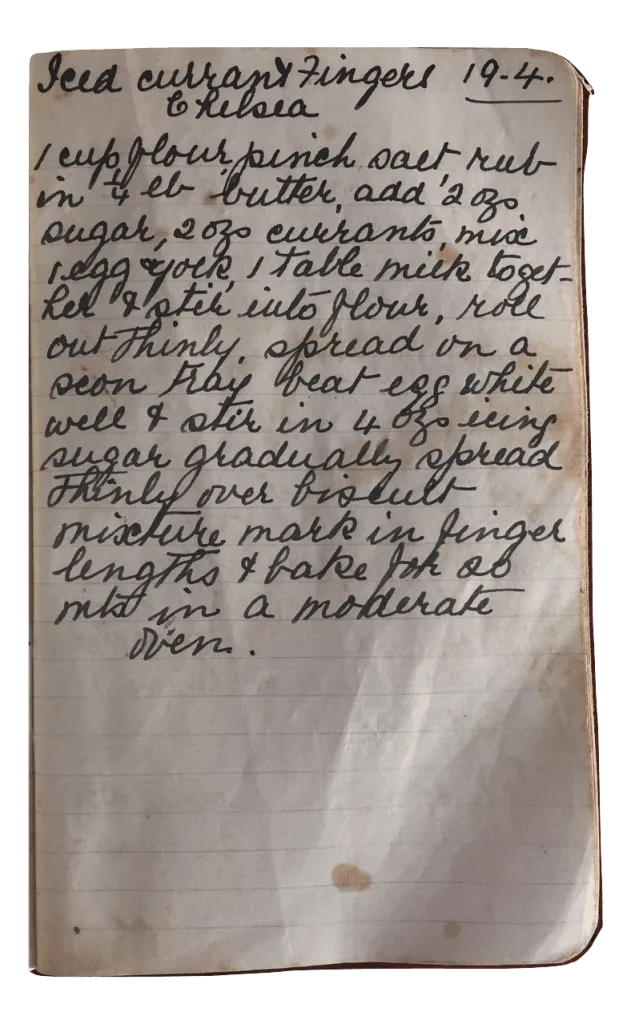 Iced currant Fingers 19-4.
Chelsea
1 cup flour, pinch salt, rub
in 1/4 lb butter, add 2 ozs
sugar, 2 ozs currants, mix
1 egg yolk, 1 table milk toget-
her & stir into flour, roll
out thinly, spread on a
scon tray beat egg white
well & stir in 4 ozs icing
sugar gradually spread
thinly over biscuit
mixture mark in finger
lengths & bake for 20
mts in a moderate
oven.